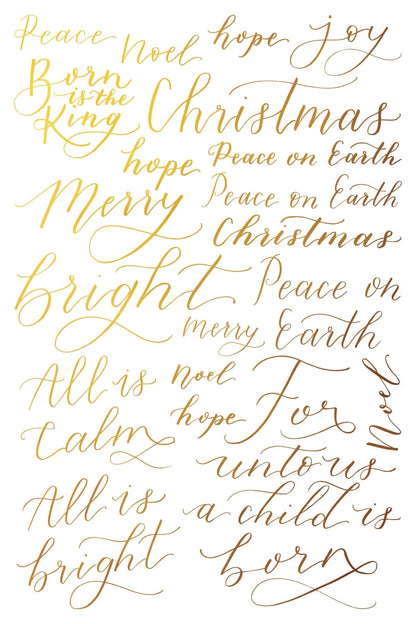 Peace
Noel
hope
joy
Born
is the
King
Christmas
hope
Peace on Earth
Merry
Peace on Earth
Christmas
bright
Peace on
Earth
merry
All is
calm
Noel
hope
For
unto us
a child is
born
Noel
All is
bright